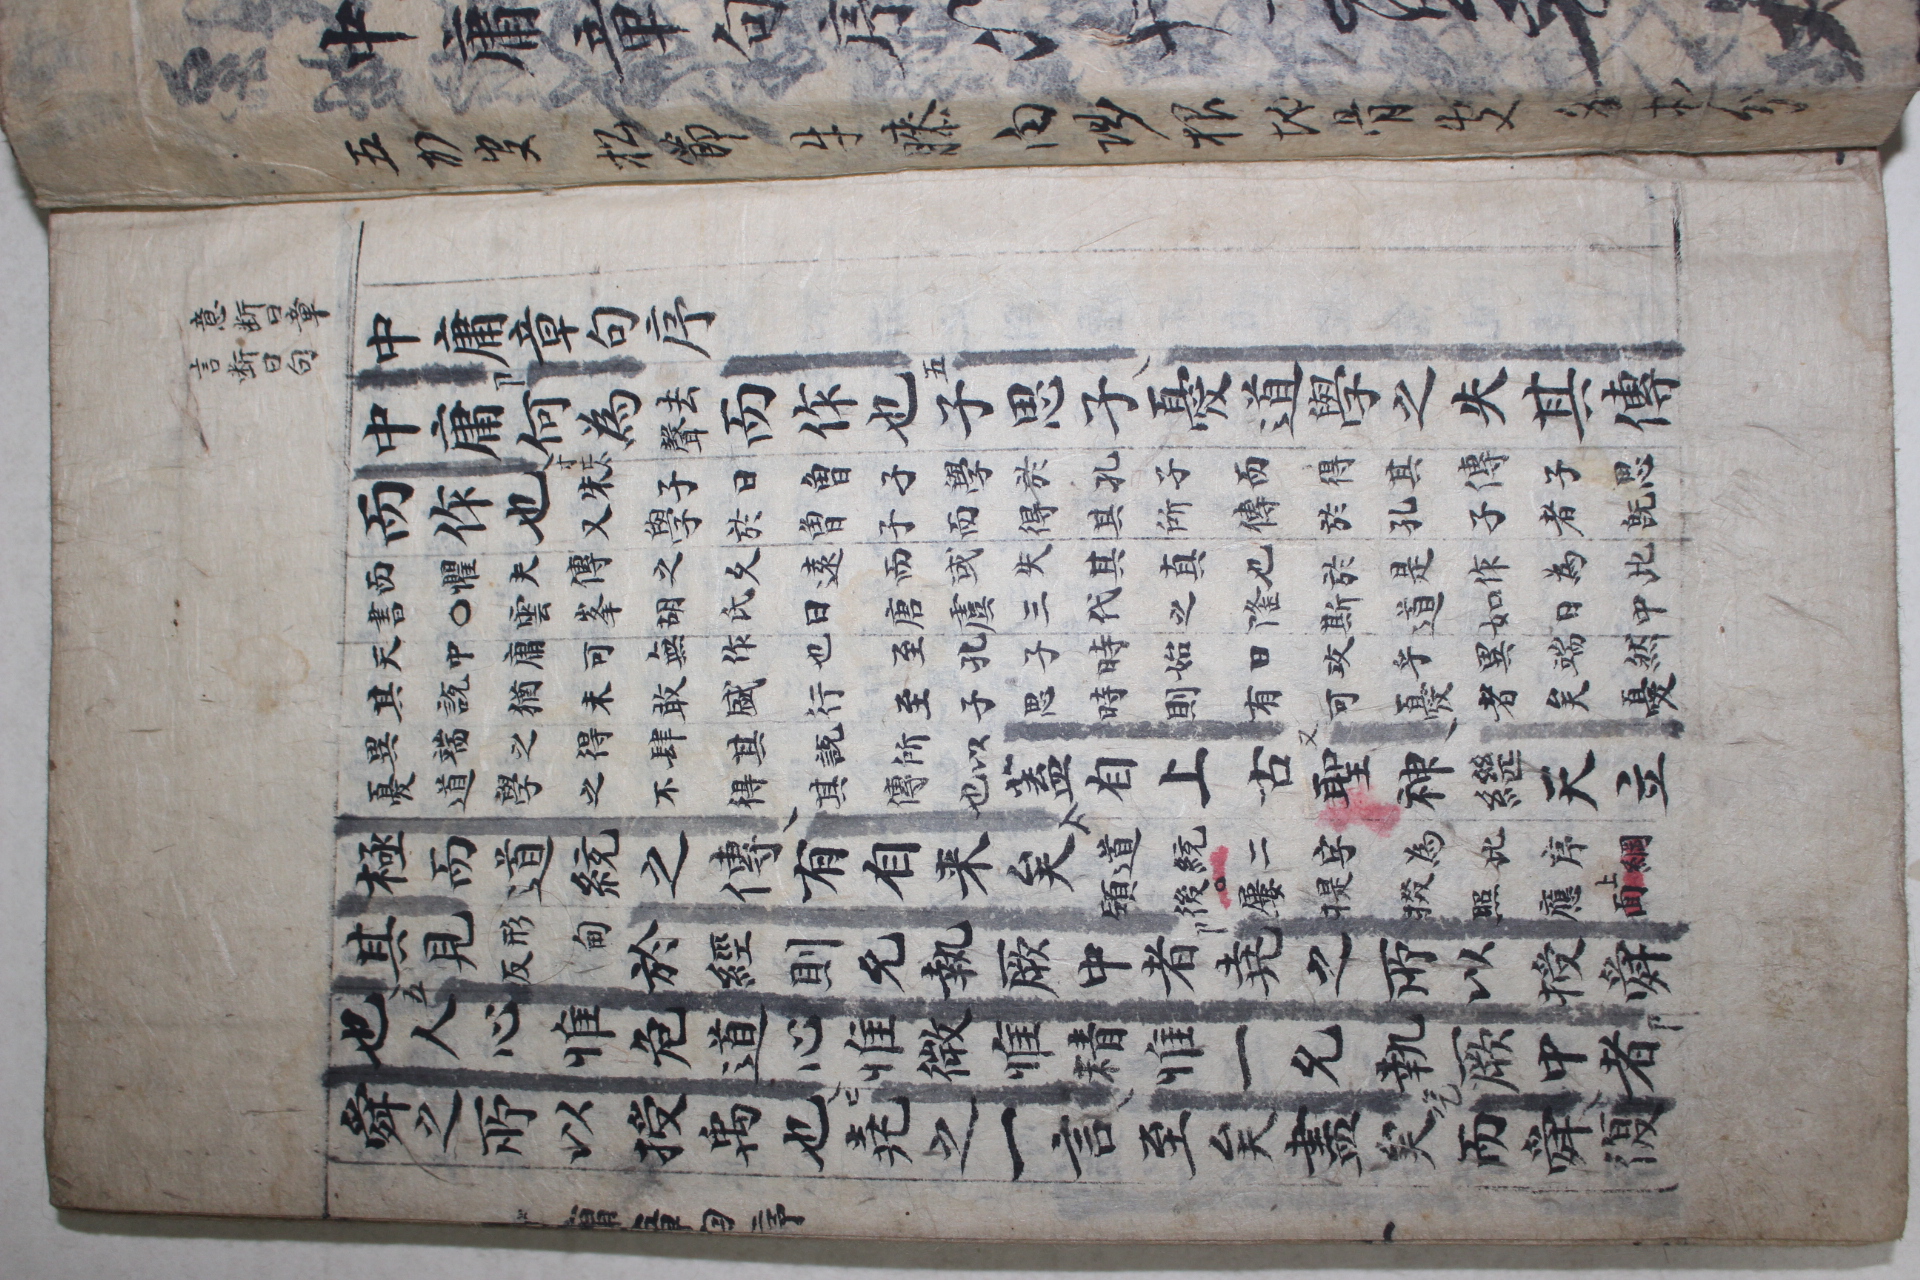 中庸章句序
五加皮 松節 牛膝
意断曰章
言断曰句
中庸章句序
中庸何為去聲而作也子思子憂道學之失其傳
而作也
朱子曰曾子學於孔子而得其傳子思
又學於曾子而得其所傳於孔子者既
而懼夫傳之久遠而或失其真也於是作為此
書○雲峯胡氏曰唐虞三代之隆斯道如日中
天中庸可無作也至孔子時始曰攻乎異端然
其説猶未敢盛行至子思時則有可憂者矣憂
異端之得肆其説所以
憂道學之不得其傳也
蓋自上古聖神繼天立
極而道統之傳有自来矣
道統二字為此序綱
領後○屢提掇照應上面
其見形甸反於經則允執厥中者堯之所以授舜
也人心惟危道心惟微惟精惟一允執厥中者
舜之所以授禹也堯之一言至矣盡矣而舜復
庸章句序